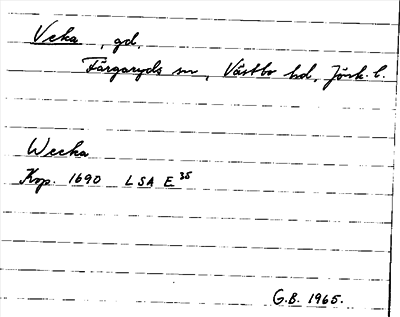 Veka, gd,
Färgaryds sn, Västbo hd, Jönk. l.
Wecka
Kop. 1690 LSA E 35
G.B. 1965.